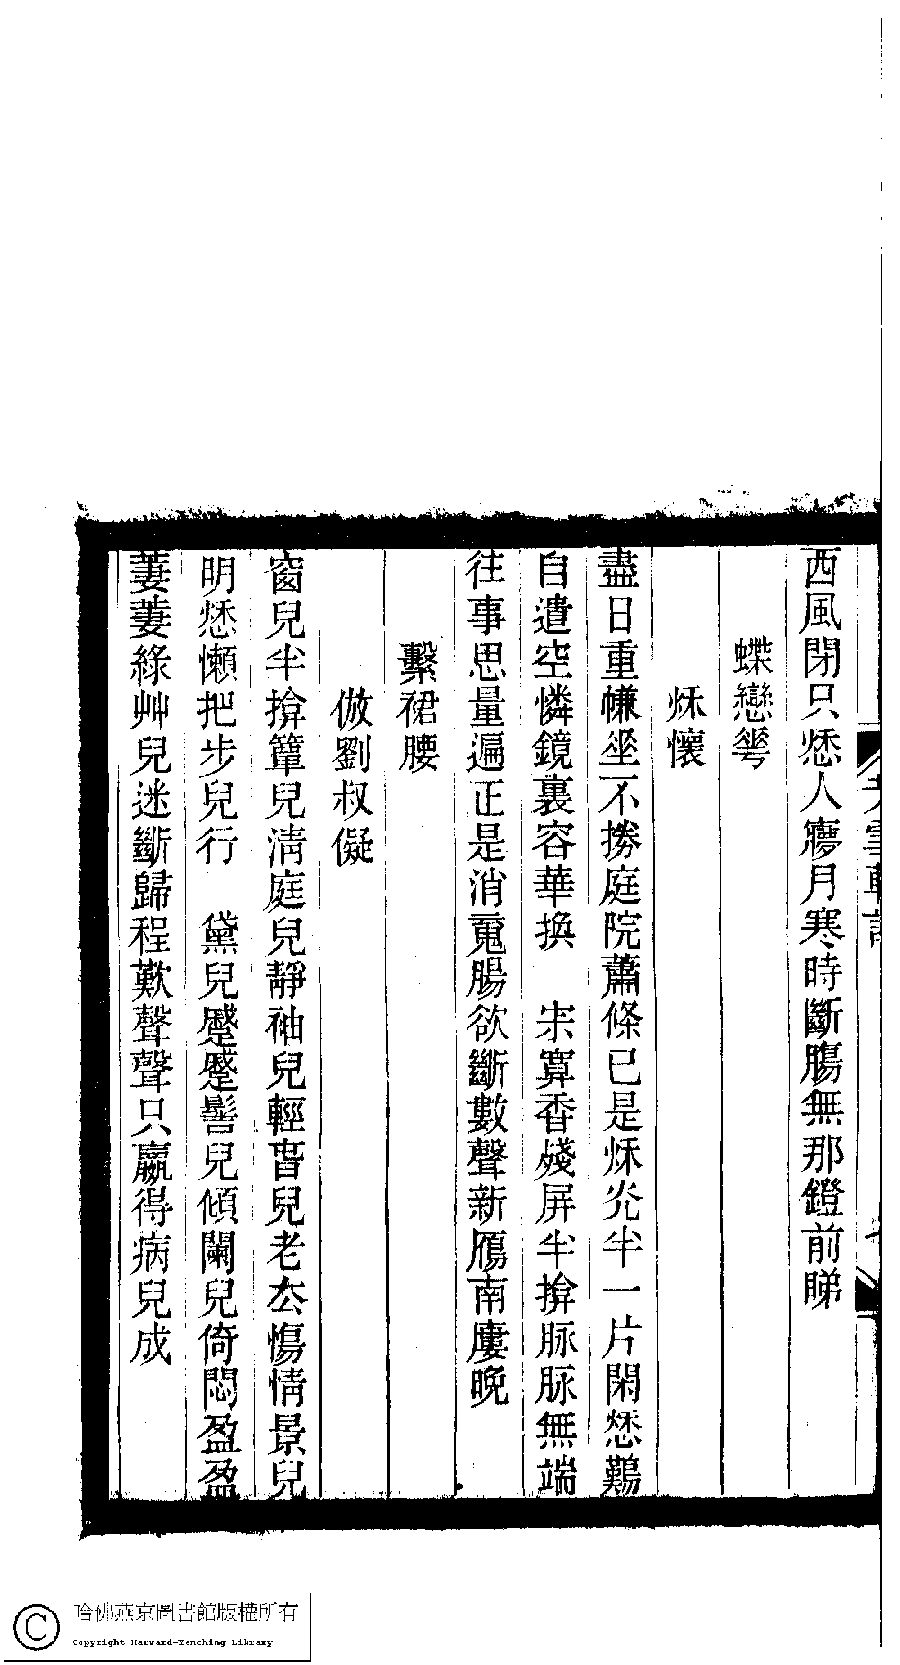 西風閉只愁人㝱月寒時斷腸無那鐙前睇
蝶戀雩
秌懷
盡日重㡘坐不捲庭院蕭條已是秌光半一片閑愁難
自遣空憐鏡裏容華換　宋寘香殘屏半揜脈脈無端
往事思量遍正是消䰟腸欲斷數聲新鴈南廔晚
繫裙腰
倣劉叔儗
窗兒半揜簟兒淸庭兒靜袖兒輕萅兒老厺傷情景兒
明愁懶把步兒行　黛兒蹙蹙髻兒傾闌兒倚悶盈盈
萋萋綠艸兒迷斷歸程歎聲聲只贏得病兒成
雪軒詞
哈佛燕京圖書館版權所有
Copyright Harvard-Yenching Library